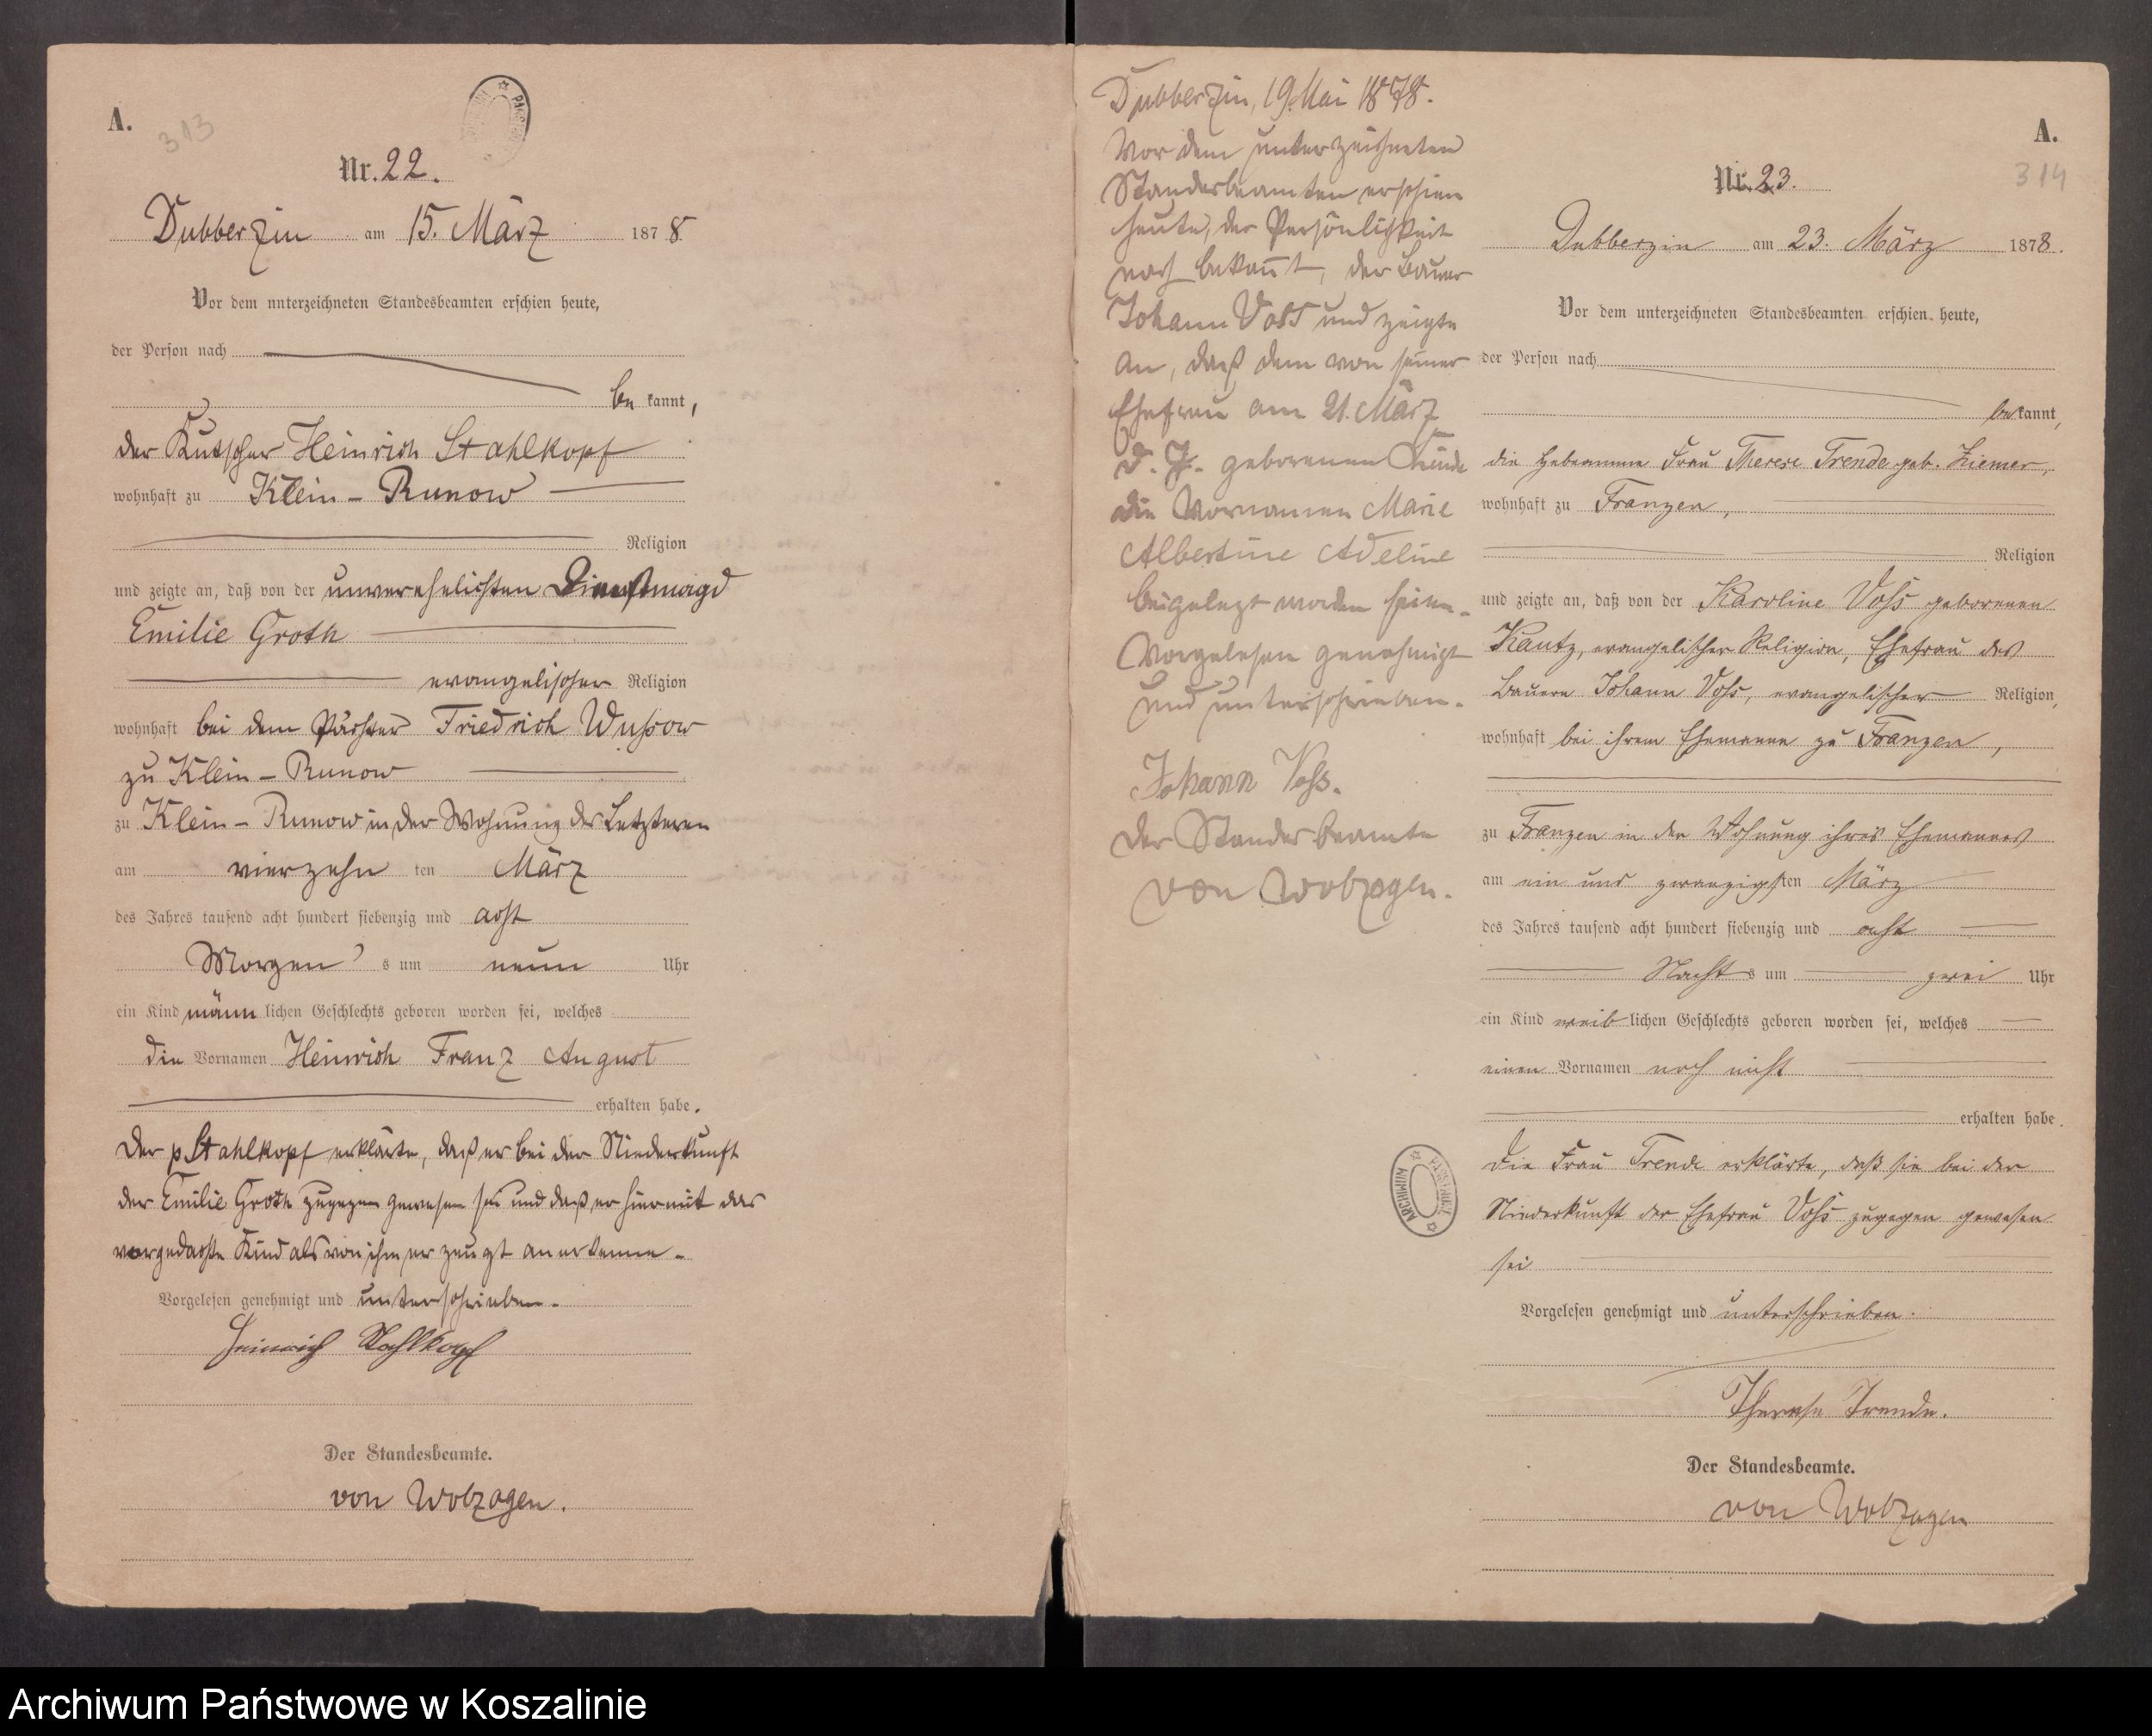 A.
313
Nr. 22.
Dubberzin am 15. März 1878
Vor dem unterzeichneten Standesbeamten erschien heute,
der Person nach
be kannt,
der Kutscher Heinrich Stahlkopf
wohnhaft zu Klein-Runow
Religion
und zeigte an, daß von der unverehelichten Dienstmagd
Emilie Groth
evangelischer Religion
wohnhaft bei dem Pächter Friedrich Wussow
zu Klein-Runow
zu Klein-Runow in der Wohnung des Letzteren
am vierzehn ten März
des Jahres tausend acht hundert siebenzig und acht
Morgen s um neun Uhr
ein Kind männ lichen Geschlechts geboren worden sei, welches
die Vornamen Heinrich Franz August
erhalten habe.
Der p Stahlkopf erklärte, daß er bei der Niederkunft
der Emilie Groth zugegen gewesen sei und daß er hiermit das
vorgedachte Kind als von ihm erzeugt anerkenne.
Vorgelesen genehmigt und unterschrieben.
Heinrich Stahlkopf
Der Standesbeamte.
von Wobzogen.
Dubberzin, 19. Mai 1878.
Vor dem unterzeichneten
Standesbeamten erschien
heute, der Persönlichkeit
nach bekannt, der Bauer
Johann Voss und zeigte
an, daß dem von seiner
Ehefrau am 21. März
d. J. geborenen Kinde
die Vornamen Marie
Albertine Adeline
beigelegt worden seien.
Vorgelesen genehmigt
und unterschrieben.
Johann Voss.
Der Standesbeamte
von Wobzogen.
A.
314
Nr. 23.
Dubberzin am 23. März 1878.
Vor dem unterzeichneten Standesbeamten erschien heute,
der Person nach
be kannt,
die Hebeamme Frau Therese Trende geb. Ziemer,
wohnhaft zu Franzen,
Religion
und zeigte an, daß von der Karoline Voss geborenen
Kautz, evangelischer Religion, Ehefrau des
Bauern Johann Voss, evangelischer Religion,
wohnhaft bei ihrem Ehemanne zu Franzen,
zu Franzen in der Wohnung ihres Ehemannes
am ein und zwanzigsten März
des Jahres tausend acht hundert siebenzig und acht
Nacht s um zwei Uhr
ein Kind weib lichen Geschlechts geboren worden sei, welches
einen Vornamen noch nicht
erhalten habe.
Die Frau Trende erklärte, daß sie bei der
Niederkunft der Ehefrau Voss zugegen gewesen
sei
Vorgelesen genehmigt und unterschrieben.
Therese Trende.
Der Standesbeamte.
von Wobzogen
Archiwum Państwowe w Koszalinie